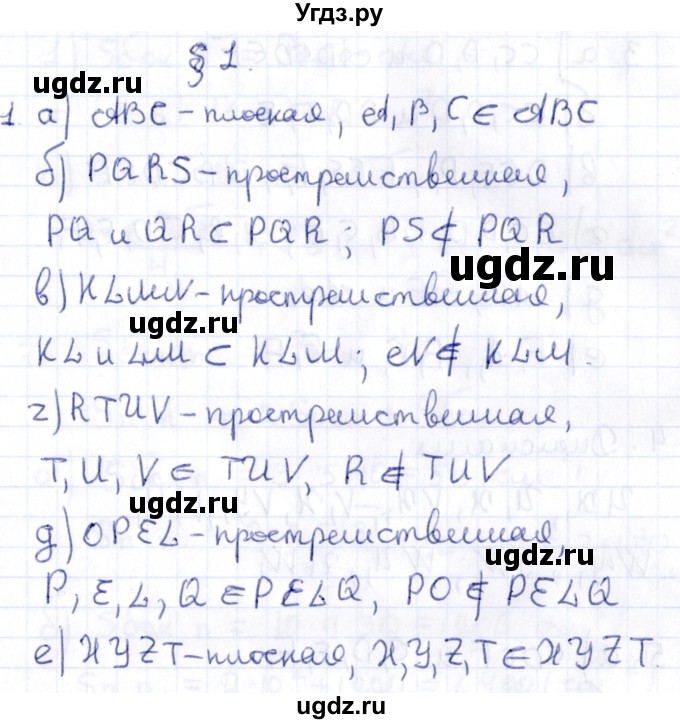 Угдз.ру
§ 1.
ugdz.ru
1. а) ABC – плоская, A, B, C ∈ ABC
ugdz.ru
б) PQRS – пространственная,
PQ и QR ⊂ PQR; PS ⊄ PQR
ugdz.ru
в) KLMN – пространственная,
ugdz.ru
KL и LM ⊂ KLM; N ∉ KLM.
г) RTUV – пространственная,
T, U, V ∈ TUV, R ∉ TUV
ugdz.ru
д) OPEL – пространственная,
ugdz.ru
P, E, L, Q ∈ PELQ, PO ⊄ PELQ
е) XYZT – плоская, X, Y, Z, T ∈ XYZT.
ugdz.ru
ugdz.ru
ugdz.ru